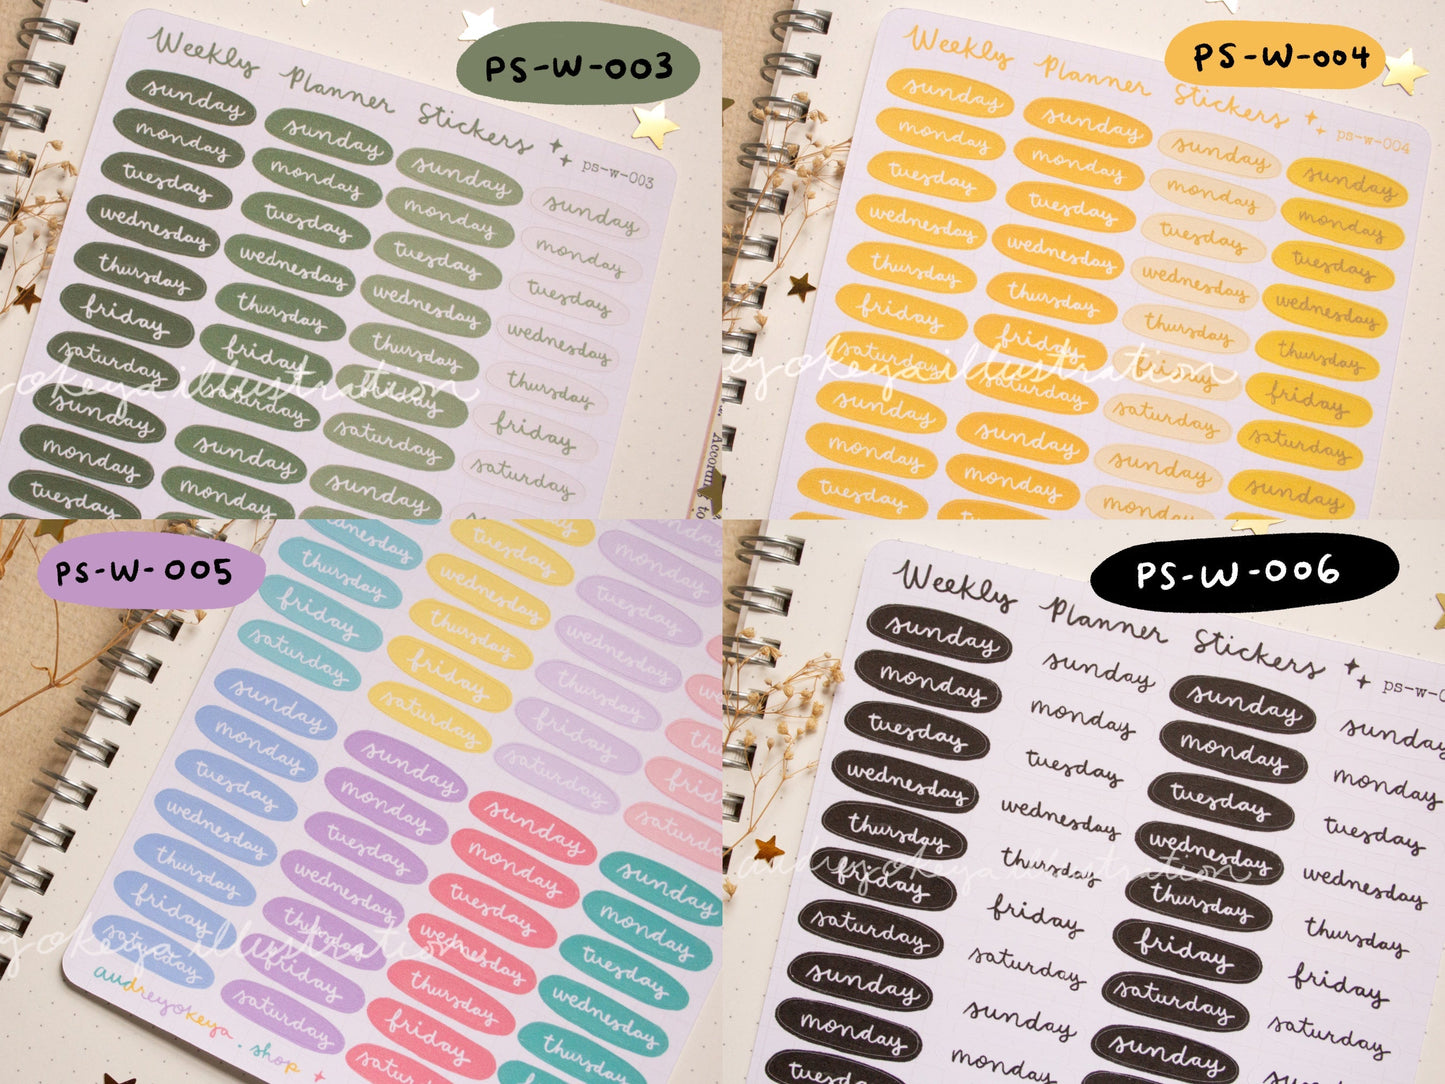 PS-W-003
Weekly Planner Stickers
ps-w-003
sunday
monday
tuesday
wednesday
thursday
friday
saturday
sunday
monday
tuesday
sunday
monday
tuesday
wednesday
thursday
friday
saturday
sunday
monday
sunday
monday
tuesday
wednesday
thursday
friday
saturday
sunday
sunday
monday
tuesday
wednesday
thursday
friday
saturday
yokeya illustration
to
PS-W-004
Weekly Planner Stickers
ps-w-004
sunday
monday
tuesday
wednesday
thursday
friday
saturday
sunday
monday
tuesday
sunday
monday
tuesday
wednesday
thursday
friday
saturday
sunday
monday
sunday
monday
tuesday
wednesday
thursday
friday
saturday
sunday
monday
sunday
monday
tuesday
wednesday
thursday
friday
saturday
sunday
monday
eyokeya illustration
PS-W-005
wednesday
thursday
friday
saturday
sunday
monday
tuesday
wednesday
thursday
friday
saturday
tuesday
wednesday
thursday
friday
saturday
sunday
monday
tuesday
wednesday
thursday
friday
saturday
monday
tuesday
wednesday
thursday
friday
saturday
sunday
monday
tuesday
wednesday
thursday
friday
saturday
sunday
monday
tuesday
wednesday
thursday
yokeya illustration
audreyokeya.shop
PS-W-006
Weekly Planner Stickers
sunday
monday
tuesday
wednesday
thursday
friday
saturday
sunday
monday
tuesday
sunday
monday
tuesday
wednesday
thursday
friday
saturday
sunday
monday
sunday
monday
tuesday
wednesday
thursday
friday
saturday
sunday
sunday
monday
tuesday
wednesday
thursday
friday
saturday
audreyokeya illustration